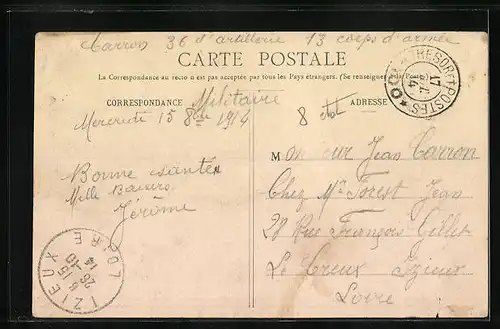 Carron 36 d'artillerie 13 corps d'armée
CARTE POSTALE
La Correspondance au recto n'est pas acceptée par tous les Pays étrangers. (Se renseigner
CORRESPONDANCE
Militaire
ADRESSE
Mercredi 15 8bre 1914
Bonne santée
Mille Baisers
Jérôme
Monsieur Jean Carron
Chez Mr Forest Jean
Rue François Gillet
Le Creux Izieux
Loire
TRESOR ET POSTES
17
14
IZIEUX
LOIRE